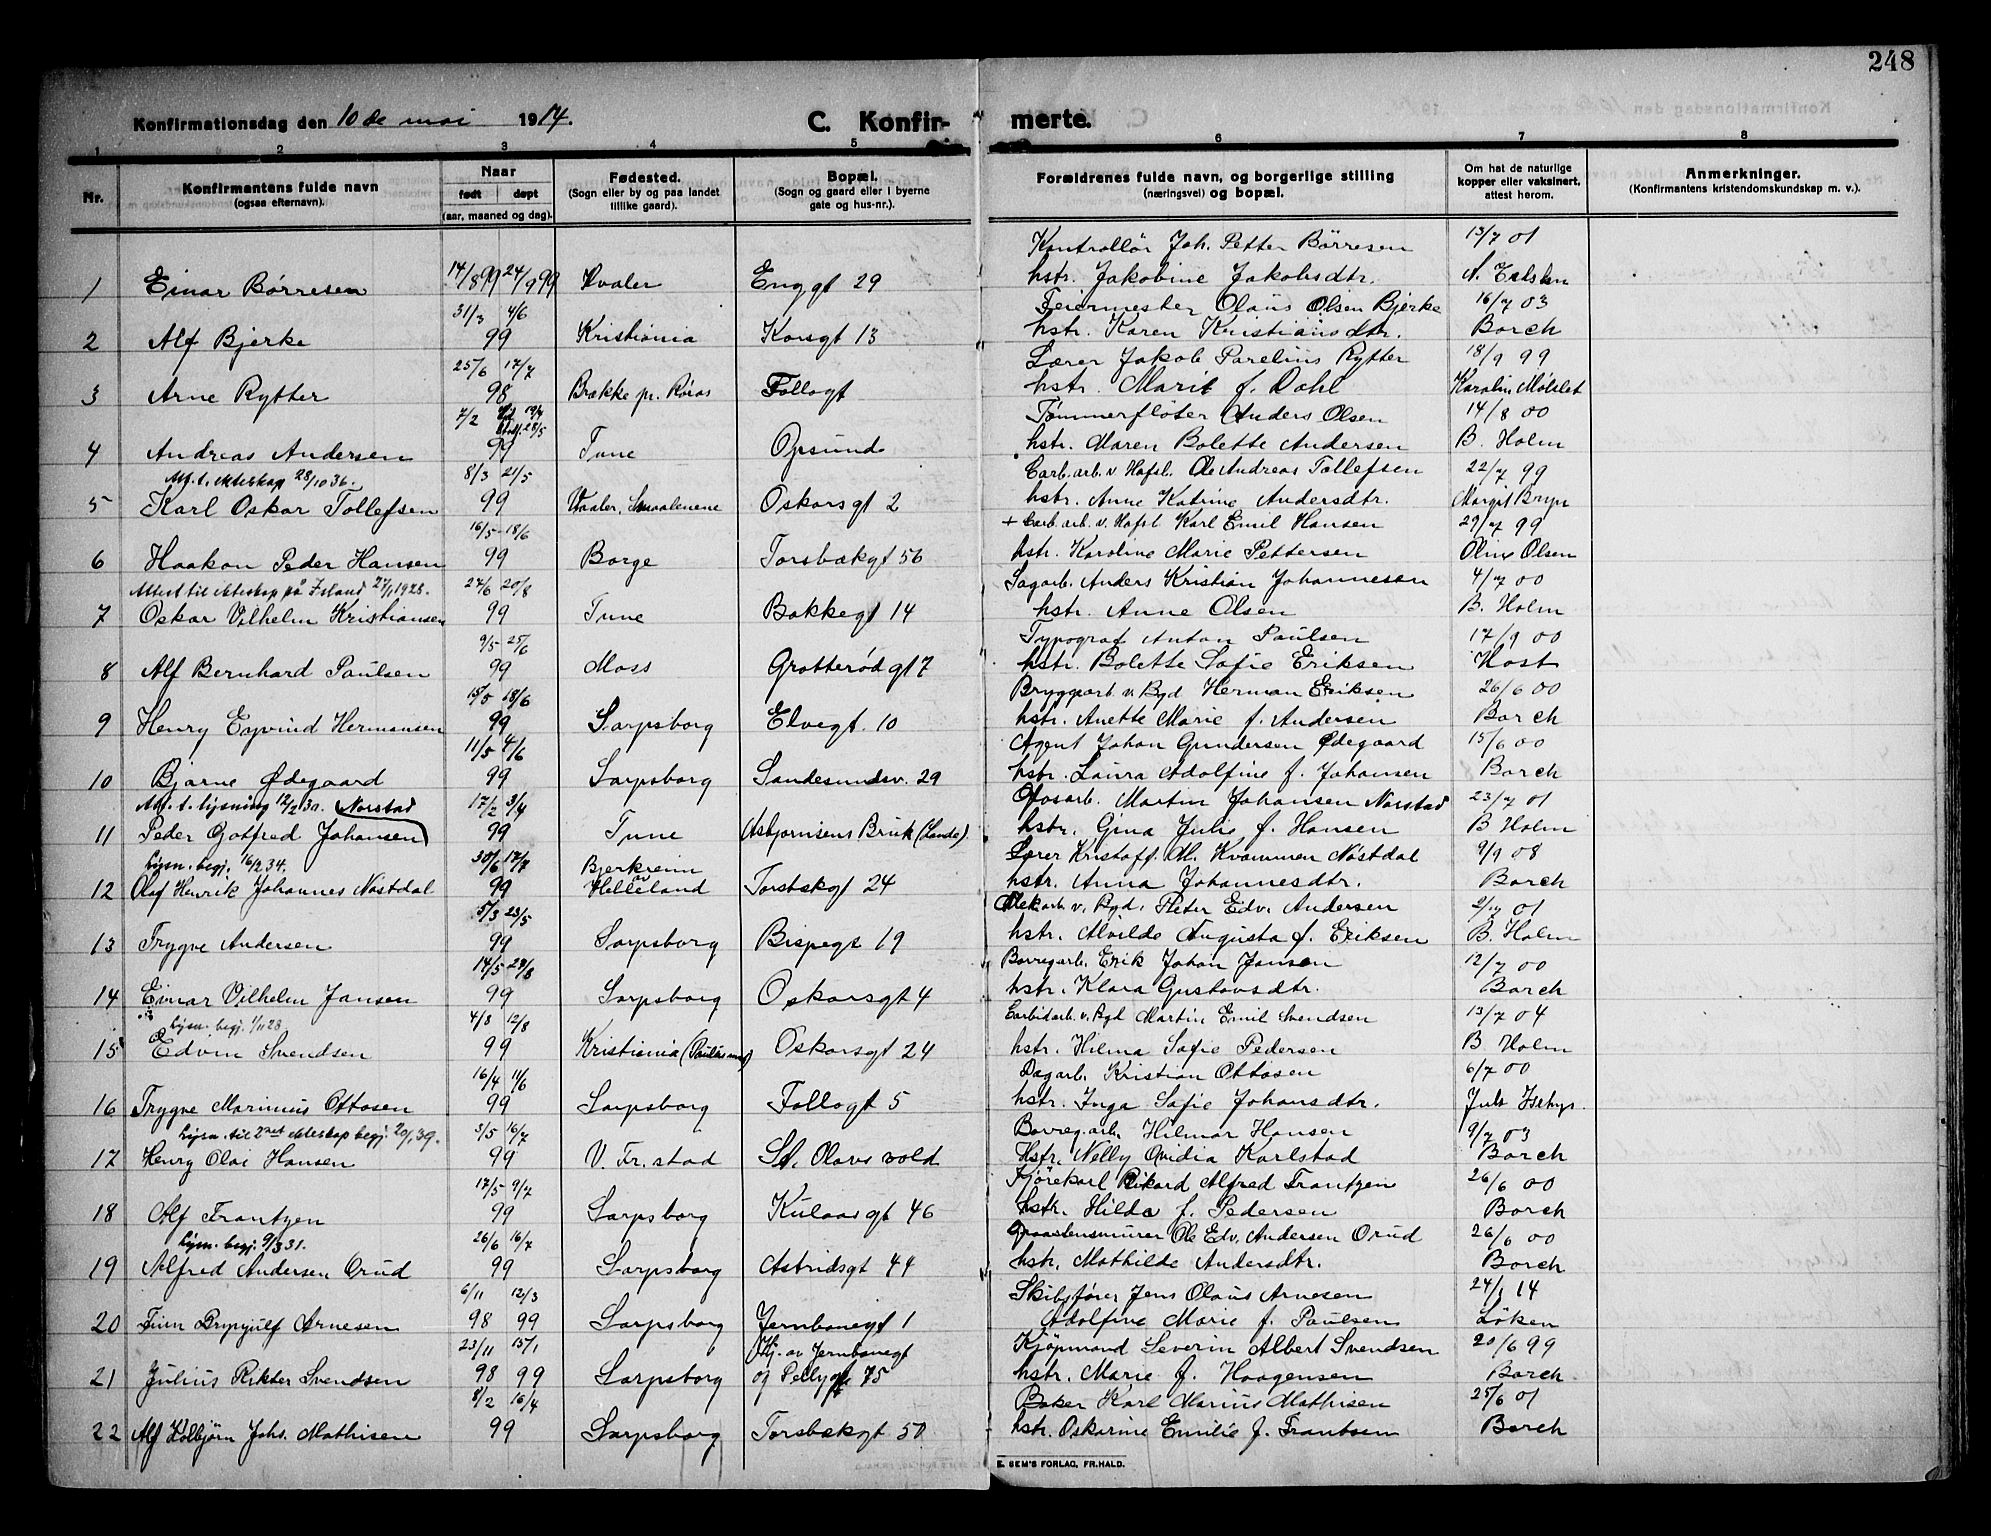 248
Konfirmationsdag den 10de mai 1914. C. Konfir- merte.
1 2 3 4 5 6 7 8
Nr. Konfirmantens fulde navn (ogsaa efternavn). Naar født døpt (aar, maaned og dag). Fødested. (Sogn eller by og paa landet tillike gaard). Bopæl. (Sogn og gaard eller i byerne gate og hus-nr.). Forældrenes fulde navn, og borgerlige stilling (næringsvei) og bopæl. Om hat de naturlige kopper eller vaksinert, attest herom. Anmerkninger. (Konfirmantens kristendomskundskap m. v.).
Kontrollör Joh. Petter Börresen 13/7 01
1 Einar Børresen 14/8 99 24/9 99 Hvaler Enggt 29 hstr. Jakobine Jakobsdtr.
31/3 4/6 Feiermester Olaus Olsen Bjerke 16/7 03
2 Alf Bjerke 99 Kristiania Korsgt 13 hstr. Karen Kristiansdtr. Borch
25/6 17/7 Lærer Jakob Parelius Rytter 18/9 99
3 Arne Rytter 98 Brække pr. Røros Follogt hstr. Marit f. Dahl Karolin Mølslet
7/2 Tømmerfløter Anders Olsen 14/8 00
4 Andreas Andersen 99 Tune Opsund hstr. Maren Bolette Andersen B. Holm
Att. t. ekteskap 28/10 36. 8/3 21/5 Carb.arb. v. Hafsl. Ole Andreas Tollefsen 22/7 99
5 Karl Oskar Tollefsen 99 Vaaler, Smaalenene Oskarsgt 2 hstr. Anne Katrine Andersdtr. Margit Bryn
16/5 - 18/6 + Carb.arb. v. Hafsl Karl Emil Hansen 29/7 99
6 Haakon Peder Hansen 99 Borge Torsbækgt 56 hstr. Karoline Marie Pettersen Oline Olsen
Attest til ekteskap på Island 27/1 1928. 27/6 20/8 Sagarb. Anders Kristian Johannesen 4/7 00
7 Oskar Vilhelm Kristiansen 99 Tune Bakkegt 14 hstr. Anne Olsen B. Holm
9/5 25/6 Typograf Anton Paulsen 17/9 00
8 Alf Bernhard Paulsen 99 Moss Grotterødgt 7 hstr. Bolette Sofie Eriksen Host
18/6 Bryggearb. v. Bgd Herman Eriksen 26/6 00
9 Henry Eyvind Hermansen 99 Sarpsborg Elvegt. 10 hstr. Anette Marie f. Andersen Borch
11/5 4/6 Agent Johan Gundersen Ødegaard 15/6 00
10 Bjarne Ødegaard 99 Sarpsborg Sandesundsv. 29 hstr. Laura Adolfine f. Johansen Borch
Att. t. lysning 12/2 30. Norstad 17/2 3/4 Martin Johansen Norstad 23/7 01
11 Peder Gotfred Johansen 99 Tune Asbjørnsens Bruk (Lande) hstr. Gina Julie f. Hansen B Holm
Lysn. begj. 16/2 34. 30/6 17/7 Bjerkreim Lærer Kristoff. M. Kvammen Nöstdal 9/9 08
12 Olaf Henrik Johannes Nöstdal 99 Helleland Torsbækgt 24 hstr. Anna Johannesdtr. Borch
5/3 23/5 v. Bgd. Peter Edv. Andersen 2/7 01
13 Trygve Andersen 99 Sarpsborg Bispegt 19 hstr. Alvilde Augusta f. Eriksen B. Holm
14/5 Borregarb. Erik Johan Jansen 12/7 00
14 Einar Vilhelm Jansen 99 Sarpsborg Oskarsgt 4 hstr. Klara Gustavsdtr. Borch
Lysn. begj. 1/11 28 4/8 12/8 Carbidarb. v. Bgd Martin Emil Svendsen 13/7 04
15 Edvin Svendsen 99 Kristiania (Paulus men) Oskarsgt 24 hstr. Hilma Sofie Pedersen B. Holm
16/4 11/6 Dagarb. Kristian Ottosen 6/7 00
16 Trygve Marinius Ottosen 99 Sarpsborg Follogt 5 hstr. Inga Sofie Johansdtr.
Lysn. til 2net ekteskap begj. 20/1 39. 3/5 16/7 Borregarb. Hilmar Hansen 9/7 03
17 Henry Olai Hansen 99 V. Fr.stad St. Olavs vold Hstr. Nelly Ovidia Karlstad Borch
17/5 9/7 Kjörekarl Rikard Alfred Frantzen 26/6 00
18 Alf Frantzen 99 Sarpsborg Kulaasgt 46 hstr. Hilda f. Pedersen Borch
Lysn. begj. 9/3 31. 26/6 16/7 Graastensmurer Ole Edv. Andersen Orud 26/6 00
19 Alfred Andersen Orud 99 Sarpsborg Astridsgt 44 hstr. Mathilde Andersdtr. Borch
6/11 12/3 Skibsfører Jens Olaus Arnesen 24/1 14
20 Finn Brynjulf Arnesen 98 99 Sarpsborg Jernbanegt 1 Adolfine Marie f. Paulsen Löken
23/11 15/1 Hj. av Jernbanegt Kjöpmand Severin Albert Svendsen 20/6 99
21 Julius Rikter Svendsen 98 99 Sarpsborg og Pellygt 75 hstr. Marie f. Haagensen Borch
8/2 16/4 Baker Karl Marius Mathisen 25/6 01
22 Alf Kolbjörn Johs. Mathisen 99 Sarpsborg Torsbækgt 50 hstr. Oskarine Emilie f. Frantsen Borch
E. SEM'S FORLAG, FR.HALD.